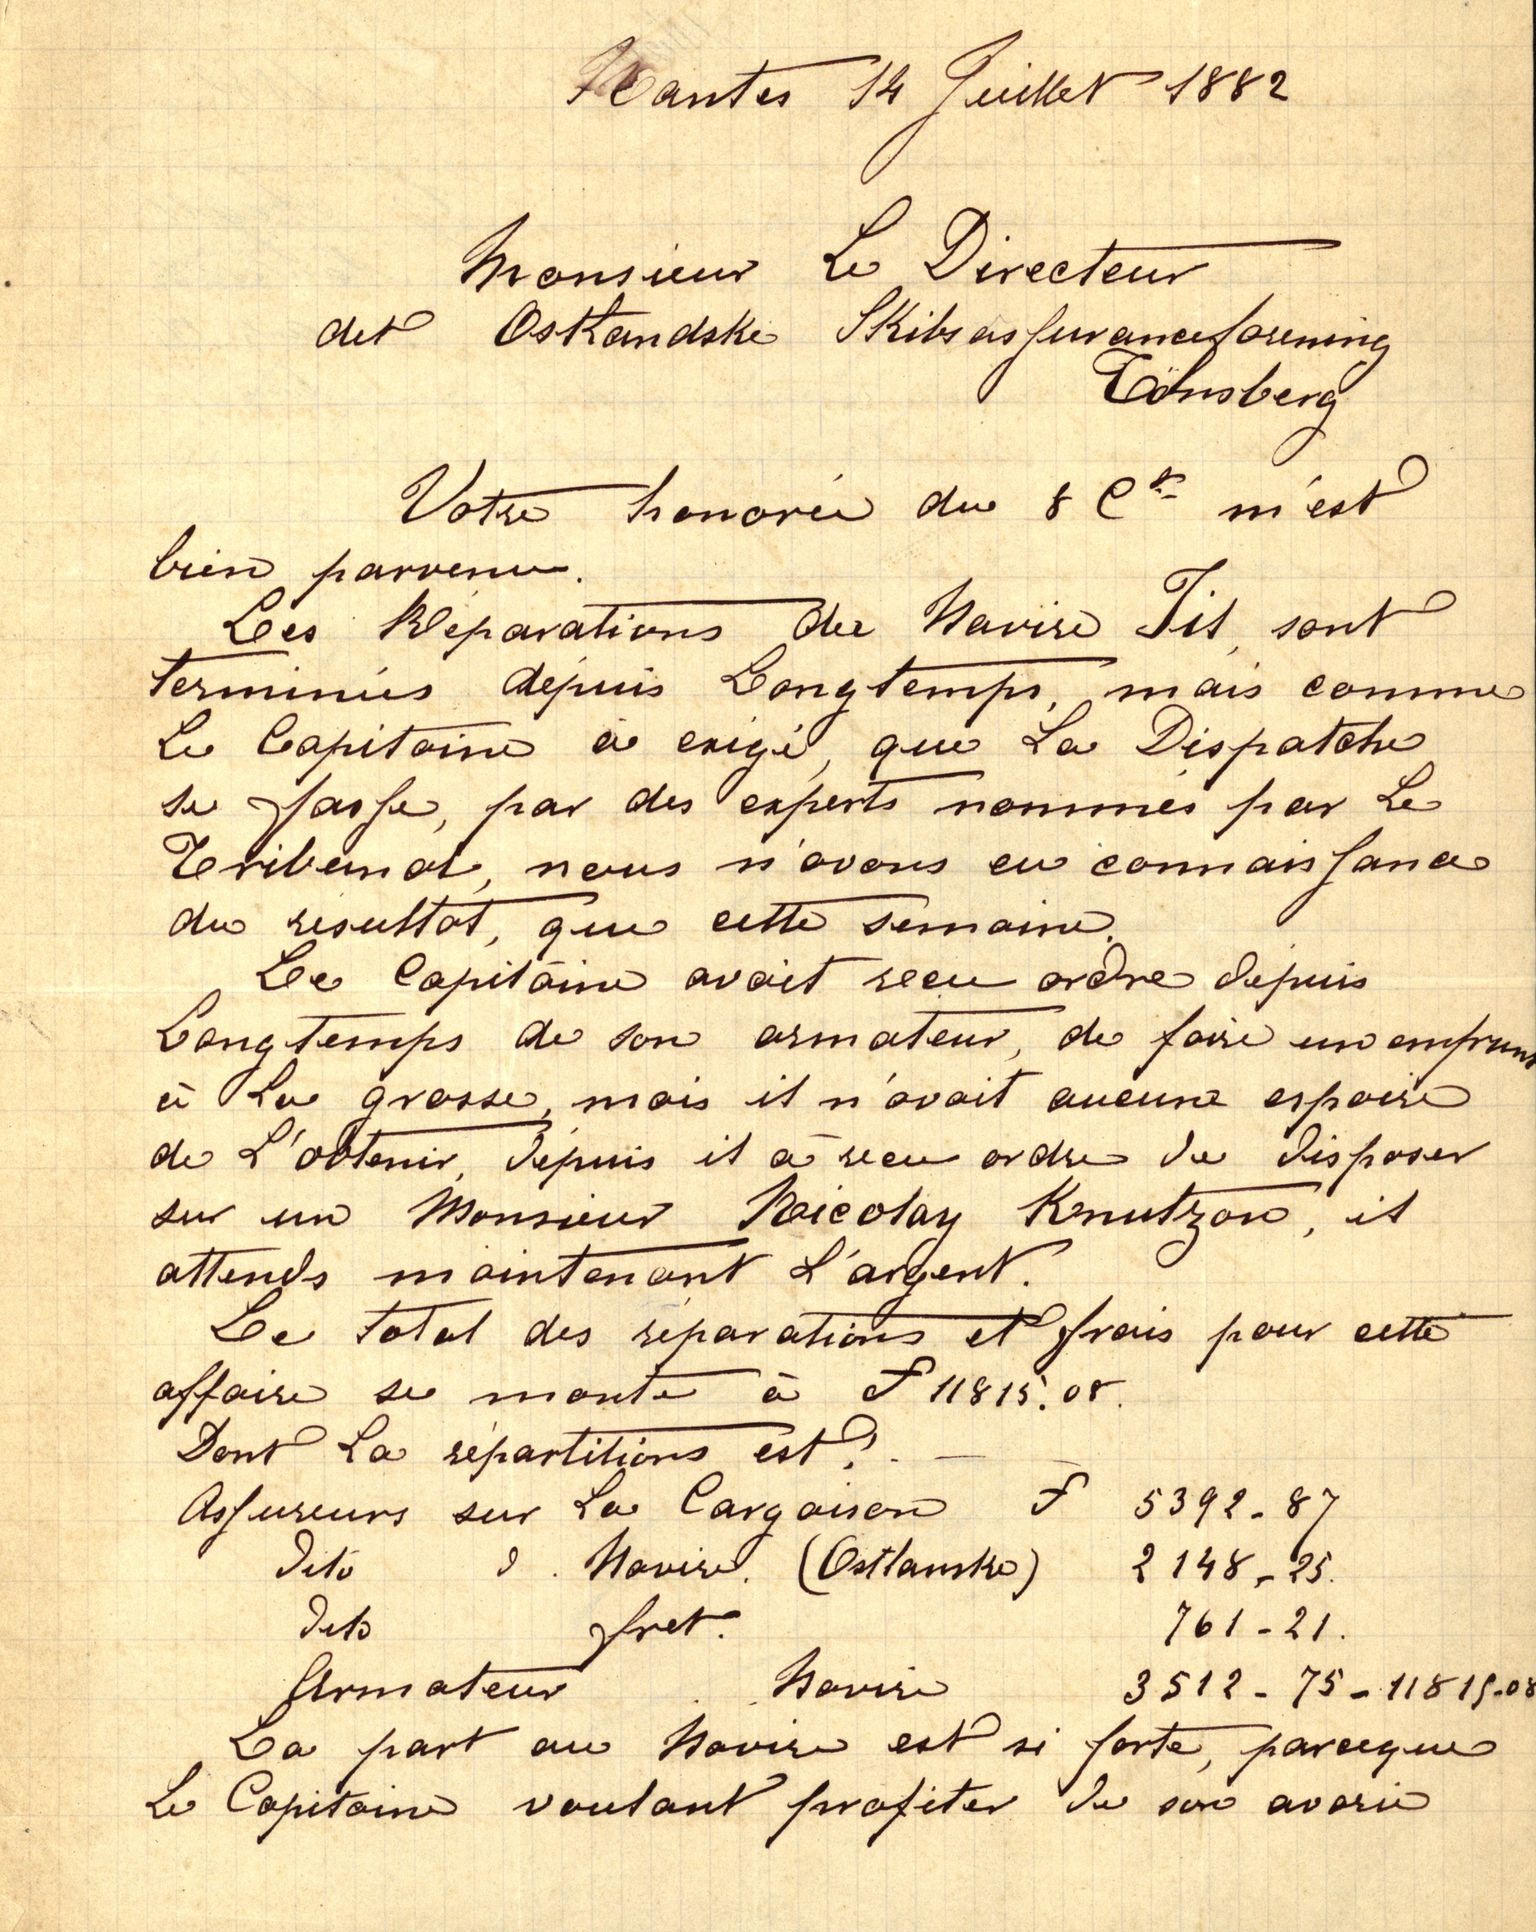 Nantes 14 Juillet 1882
Monsieur Le Directeur
det Ostlandske Skibsassuranceforening
Tönsberg
Votre honorée du 8 Ct m'est
bien parvenu.
Les Réparations du Navire Tit, sont
terminées dépuis Longtemps, mais comme
Le Capitaine à exigé, que La Dispatche
se fasse, par des experts nommés par Le
Tribunal, nous n'avons eu connaissance
du resultat, que cette semaine.
Le Capitaine avait recu ordre dépuis
Longtemps de son armateur, de faire un emprunt
à La grosse, mais il n'avait aucune espoire
de L'obtenir, dépuis il à recu ordre de disposer
sur un Monsieur Nicolay Knutzon, il
attends maintenant L'argent.
Le total des réparations et frais pour cette
affaire se monte à F 11815.08.
Dont La répartitions est: —
Assureurs sur La Cargaison F 5392-87
dito d . Navire. (Ostlanske) 2148-25.
dito fret. 761-21.
Armateur Navire 3512-75-11815-08
La part au Navire est si forte, parceque
Le Capitaine voulant profiter de son avarie